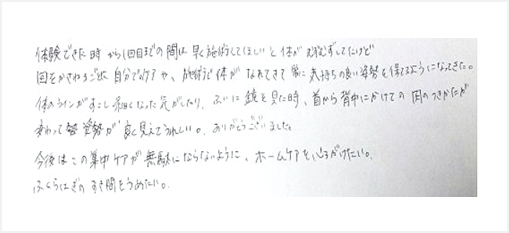 体験できた時から1回目までの間は早く施術してほしいと体がむずむずしてたけど
回をかさねるごとに自分でのケアや、施術で体がなれてきて常に気持ちの良い姿勢を保てるようになってきた。
体のラインがすこし細くなった気がしたり、ふいに鏡を見た時、首から背中にかけての肉のつきかたが
変わって姿勢が良く見えてうれしい。ありがとうございました。
今後はこの集中ケアが無駄にならないように、ホームケアを心がけたい。
ふくらはぎのすき間をうめたい。